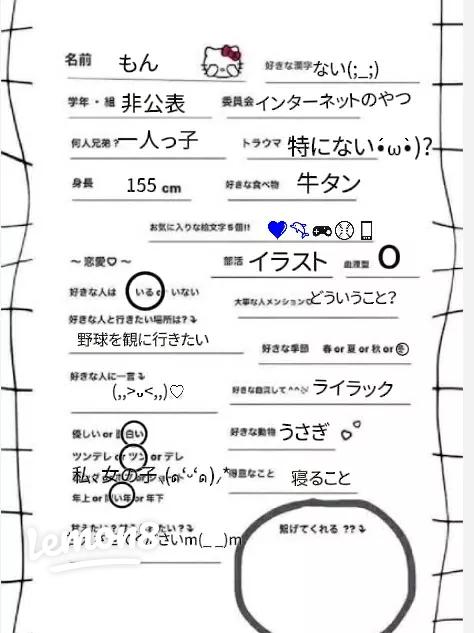 名前 もん
好きな漢字 ない(;_;)
学年・組 非公表
委員会 インターネットのやつ
何人兄弟? 一人っ子
トラウマ 特にない•̀ω•́)?
身長 155 cm
好きな食べ物 牛タン
お気に入りな絵文字5個!! 💙🐬🎮⚾📱
～ 恋愛♡ ～
部活 イラスト
血液型 O
好きな人は いる or いない
大事な人メンション♡ どういうこと?
好きな人と行きたい場所は?
野球を観に行きたい
好きな季節 春 or 夏 or 秋 or 冬
好きな人に一言
(,,>ᴗ<,,)♡
好きな曲貸して^^ ライラック
優しい or 面白い
好きな動物 うさぎ
ツンデレ or ツン or デレ
私、女の子
得意なこと 寝ること
年上 or 同い年 or 年下
さいm(_ _)m
繋げてくれる ??
Lemon8